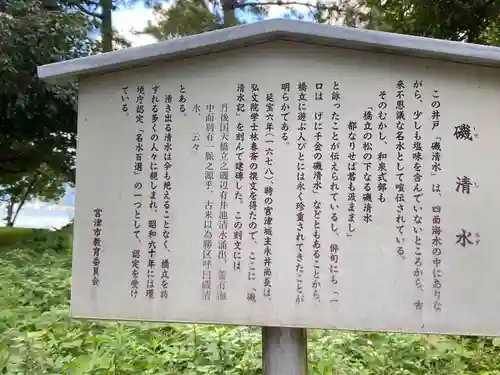 磯清水
いそしみず
この井戸「磯清水」は、四面海水の中にありな
がら、少しも塩味を含んでいないところから、古
来不思議な名水として喧伝されている。
そのむかし、和泉式部も
「橋立の松の下なる磯清水
都なりせば君も汲ままし」
と詠ったことが伝えられているし、俳句にも「一
口は げに千金の磯清水」などともあることから、
橋立に遊ぶ人びとには永く珍重されてきたことが
明らかである。
延宝六年(一六七八)時の宮津城主永井尚長は、
弘文院学士林春斎の撰文を得たので、ここに「磯
清水記」を刻んで建碑した。この刻文には
丹後国天橋立之磯辺有井池清水涌出、蓋有海
中而別有一脈之源乎、古来以為勝区呼曰磯清
水、云々
とある。
湧き出る清水は今も絶えることなく、橋立を訪
ずれる多くの人々に親しまれ、昭和六十年には環
境庁認定「名水百選」の一つとして、認定を受け
ている。
宮津市教育委員会